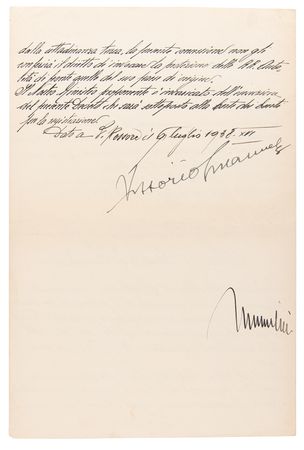 dalla cittadinanza stessa, la presente concessione non gli
conferirà il diritto di invocare la protezione delle RR. Auto-
rità di fronte a quelle del suo paese di origine.
Il Nostro Ministro proponente è incaricato dell'esecuzione
del presente Decreto che sarà sottoposto alla Corte dei Conti
per la registrazione.
Dato a S. Rossore il 9 luglio 1938. XVI
Vittorio Emanuele
Mussolini